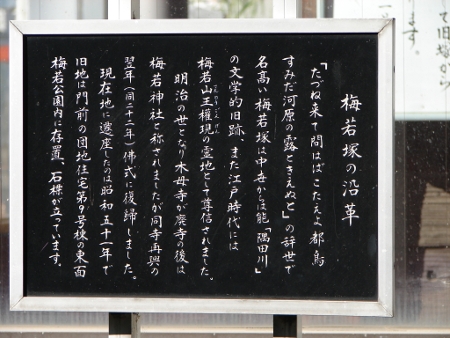 梅若塚の沿革
「たづね来て問はばこたえよ都鳥
すみだ河原の露ときえぬと」の辞世で
名高い梅若塚は中世からは能「隅田川」
の文学的旧跡、また江戸時代には
梅若山王権現の霊地として尊信されました。
明治の世となり木母寺が廃寺の後は
梅若神社と称されましたが同寺再興の
翌年(同二十二年)佛式に復帰しました。
現在地に遷座したのは昭和五十一年で
旧地は門前の団地住宅第9号棟の東面
梅若公園内に存置、石標が立っています。
て旧塚から
ます。